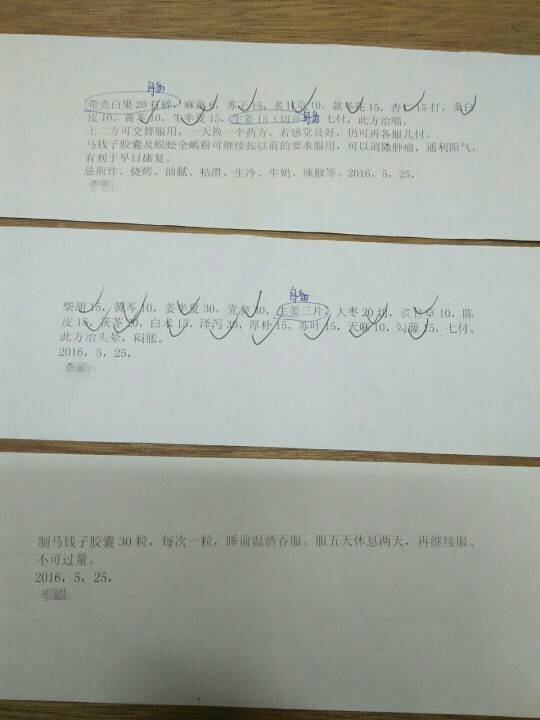 自备
带壳白果20打碎，麻黄6，苏子15，炙甘草10，款冬花15，杏仁15打，桑白
皮10，黄芩10，生半夏15，生姜15（切片 自备 七付，此方治喘。
上二方可交替服用，一天换一个药方。若感觉良好，仍可再各服几付。
马钱子胶囊及蜈蚣全蝎粉可继续按以前的要求服用，可以消除肿瘤，通利阳气，
有利于早日康复。
忌煎炸、烧烤、油腻、粘滑、生冷、牛奶、辣椒等。2016，5，25，
自备
柴胡15，黄芩10，姜半夏30，党参30，生姜三片，大枣20切，炙甘草10，陈
皮15，茯苓30，白术15，泽泻30，厚朴15，苏叶15，天麻10，勾藤15，七付。
此方治头晕，闷胀。
2016，5，25，
制马钱子胶囊30粒，每次一粒，睡前温酒吞服。服五天休息两天，再继续服。
不可过量。
2016，5，25，